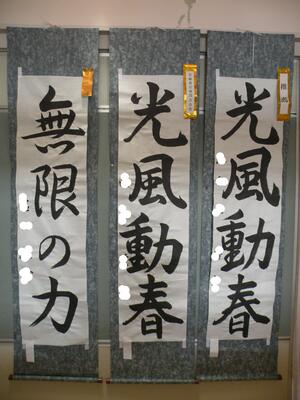 光風動春
光風動春
無限の力